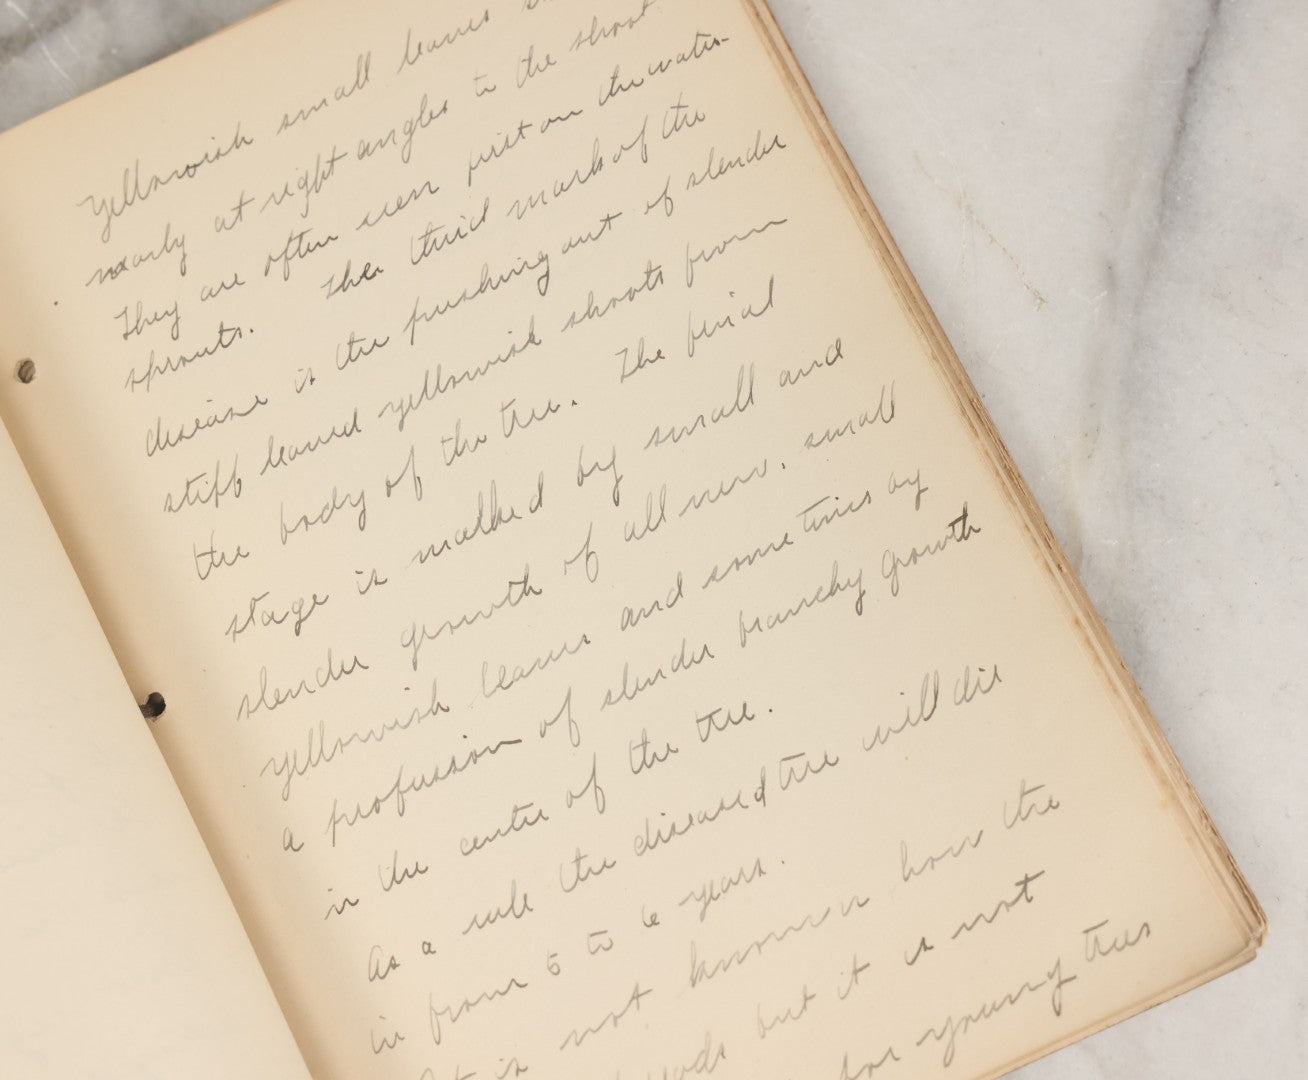 Yellowish small leaves
nearly at right angles to the shoot
They are often seen first on the water-
sprouts. The third mark of the
disease is the pushing out of slender
stiff leaved yellowish shoots from
the body of the tree. The final
stage is marked by small and
slender growth of all new. small
yellowish leaves and sometimes by
a profussion of slender branchy growth
in the centre of the tree.
As a rule the diseased tree will die
in from 5 to 6 years.
It is not known how the
but it is not
for young trees